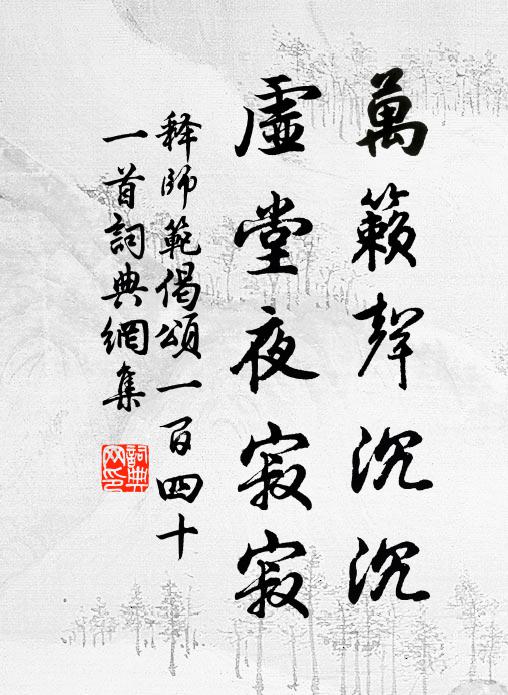 萬籟聲沉沉
虛堂夜寂寂
释師範偈頌一百四十
一首詞典網集
詞典
网印